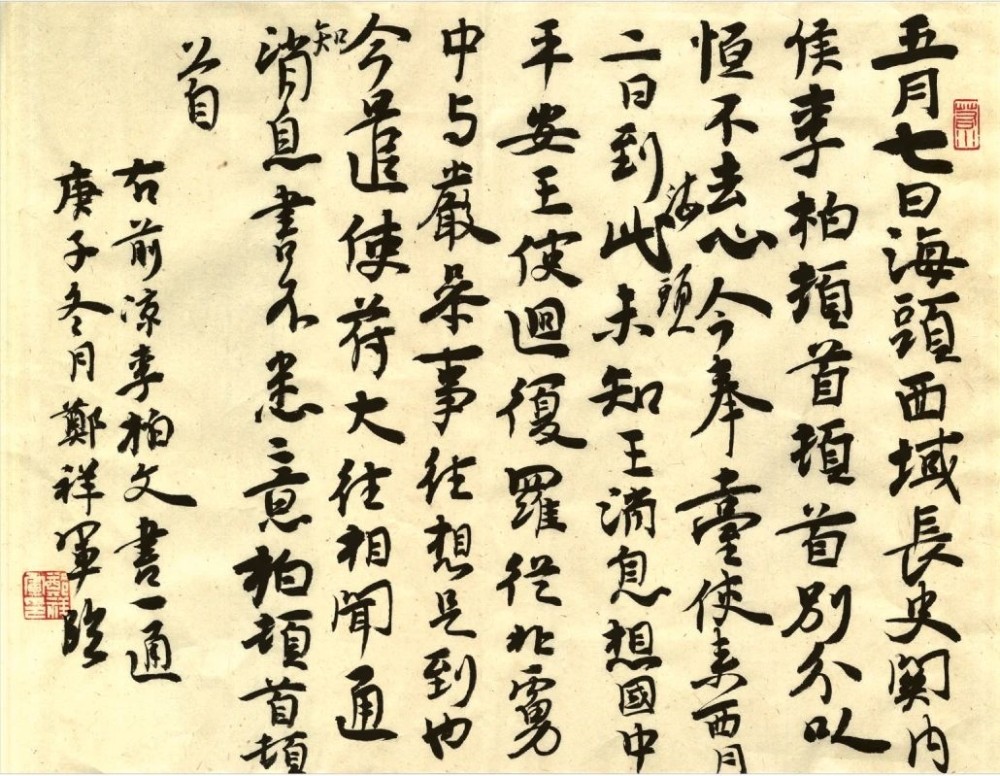 五月七日海頭西域長史関内
侯李柏頓首頓首別尒以
恒不去心今奉臺使来西月
海頭
二日到此未知王消息想國中
平安王使迴復羅從北虜
中与嚴參事往想是到也
今遣使苻大往相聞通
知
消息書不悉意柏頓首頓
首
右前凉李柏文書一通
庚子冬月鄭祥軍臨